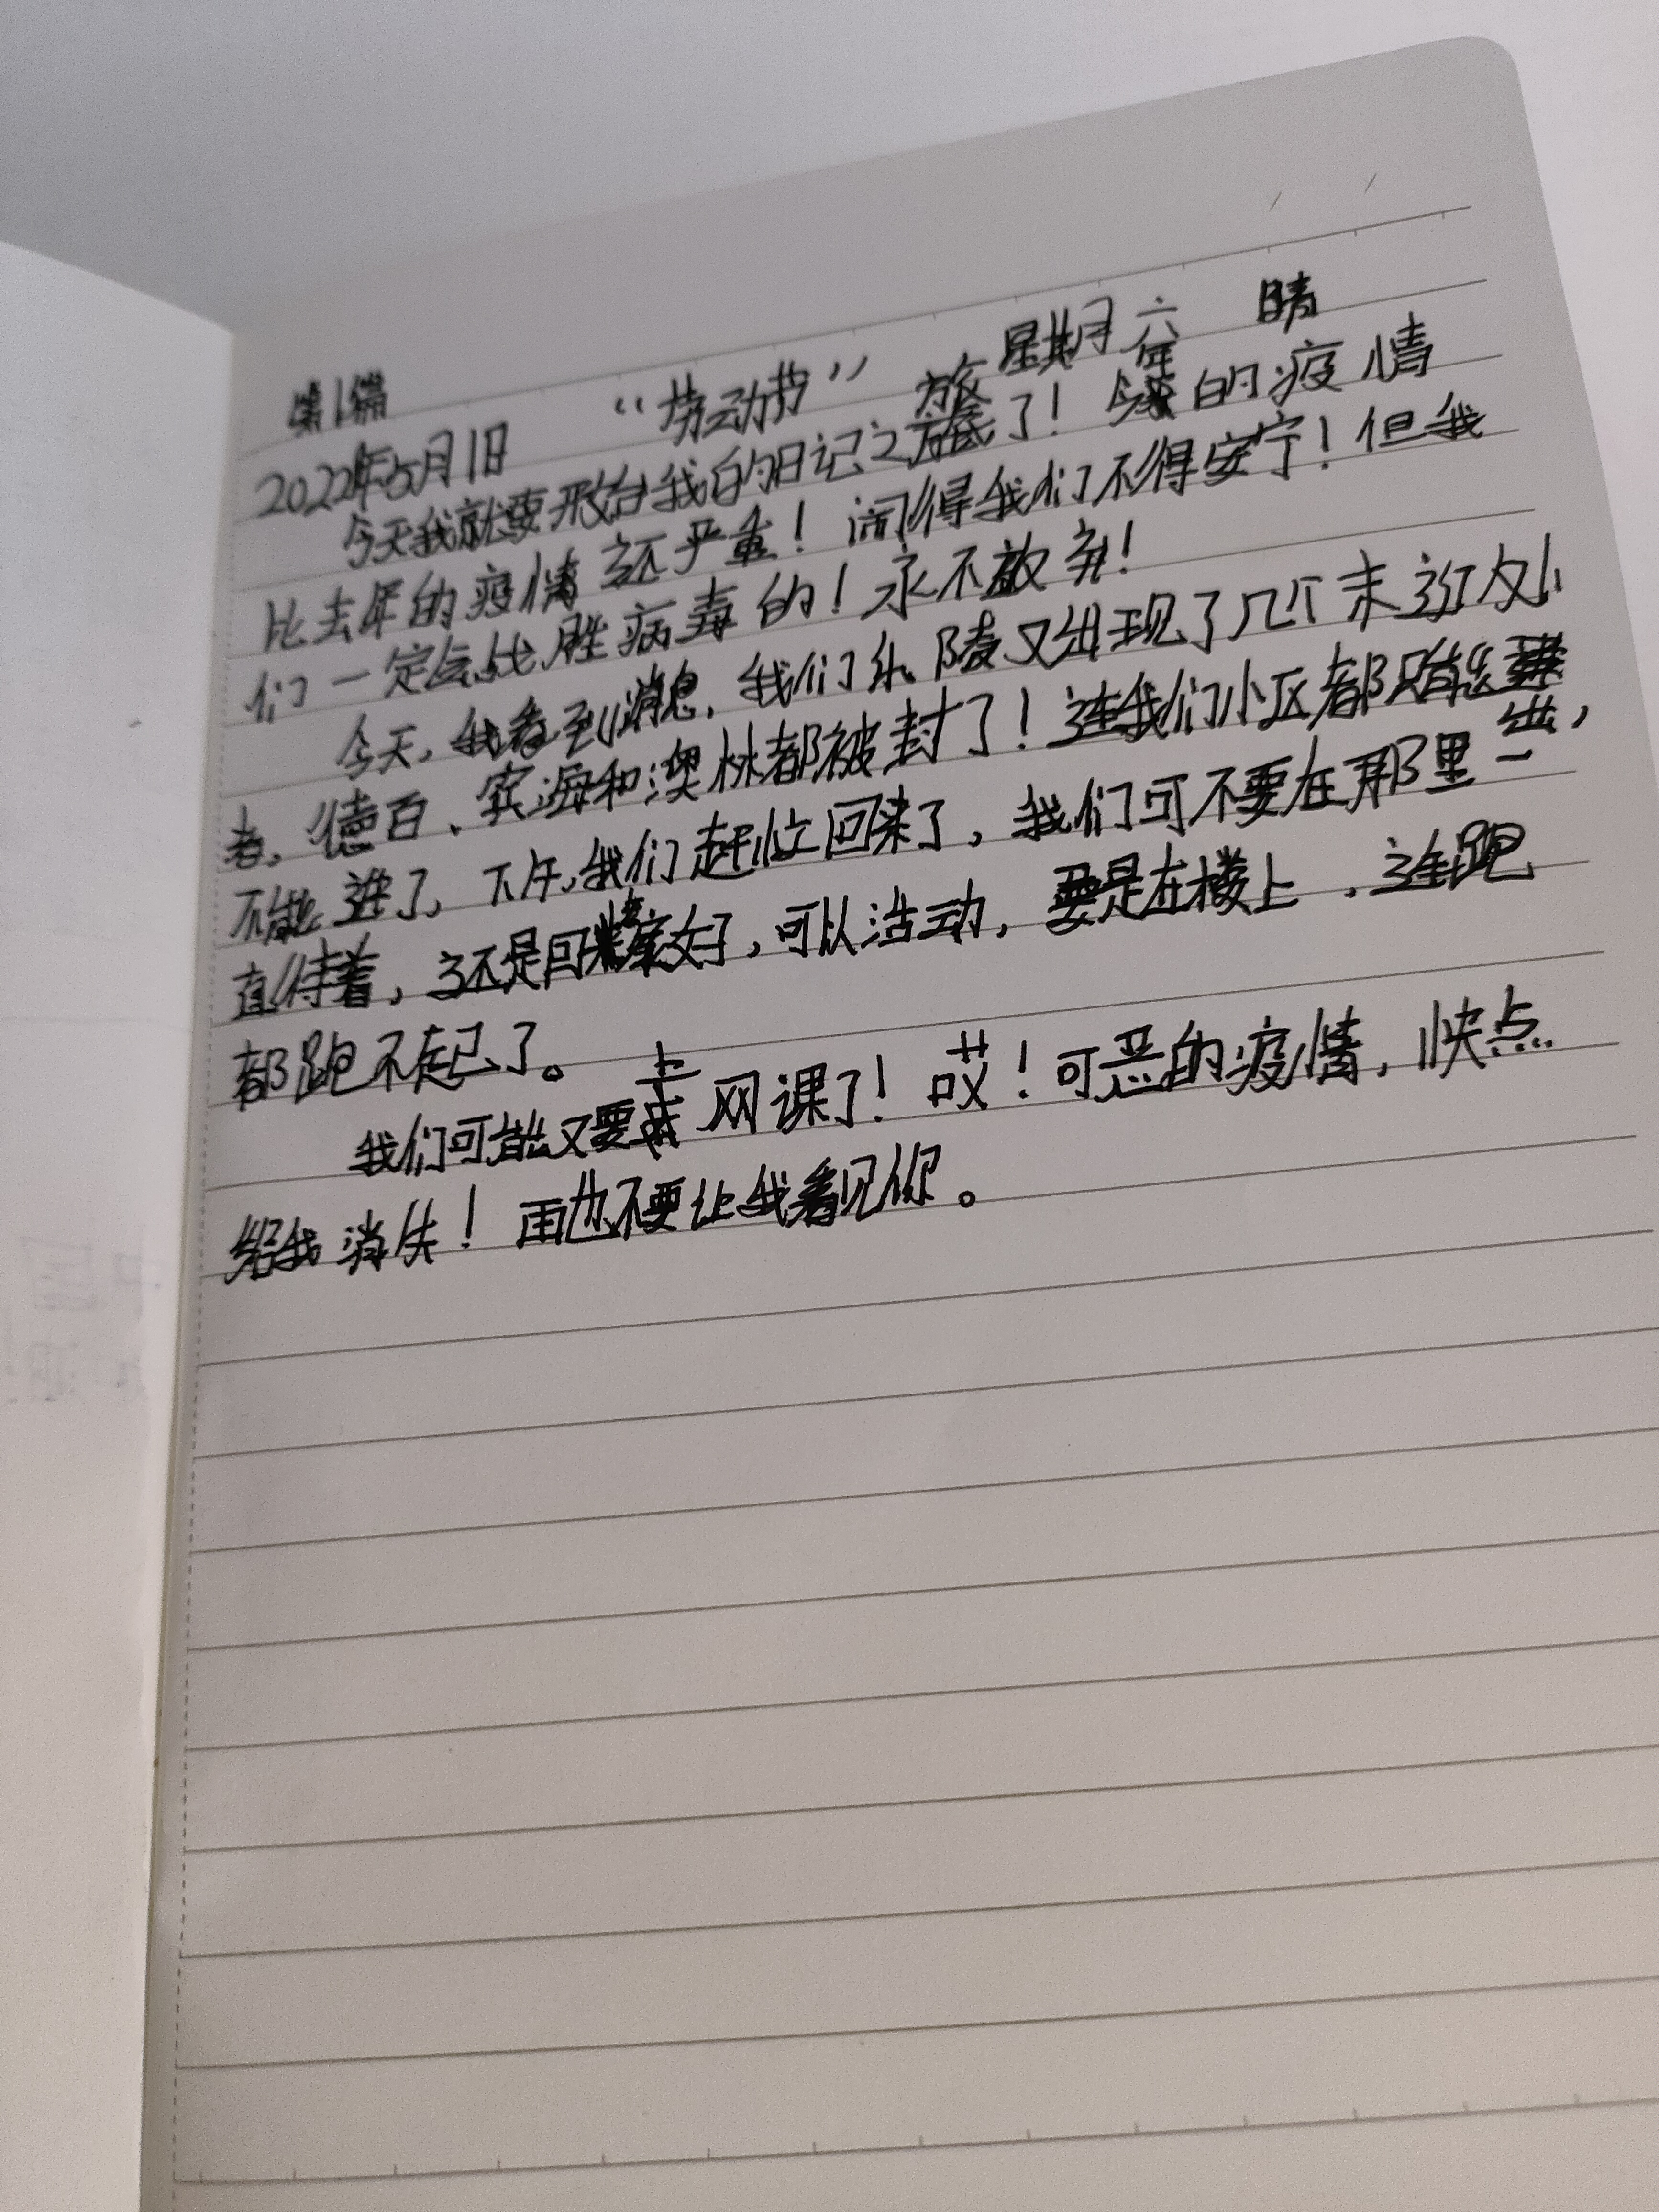 第1篇
2022年5月1日 “劳动节” 星期六 晴
今天我就要开台我的日记之旅了！今年的疫情
比去年的疫情还严重！闹得我们不得安宁！但我
们一定会战胜病毒的！永不放弃！
今天，我看到消息，我们乐陵又出现了几个未送内小
者，德百、宾海和澳林都被封了！连我们小区都只能出，
不能进了，下午，我们赶忙回来了，我们可不要在那里一
直待着，还是回家好，可以活动，要是在楼上，连跑
都跑不起己了。
我们可能又要上网课了！哎！可恶的疫情，快点
给我消失！再也不要让我看见你。